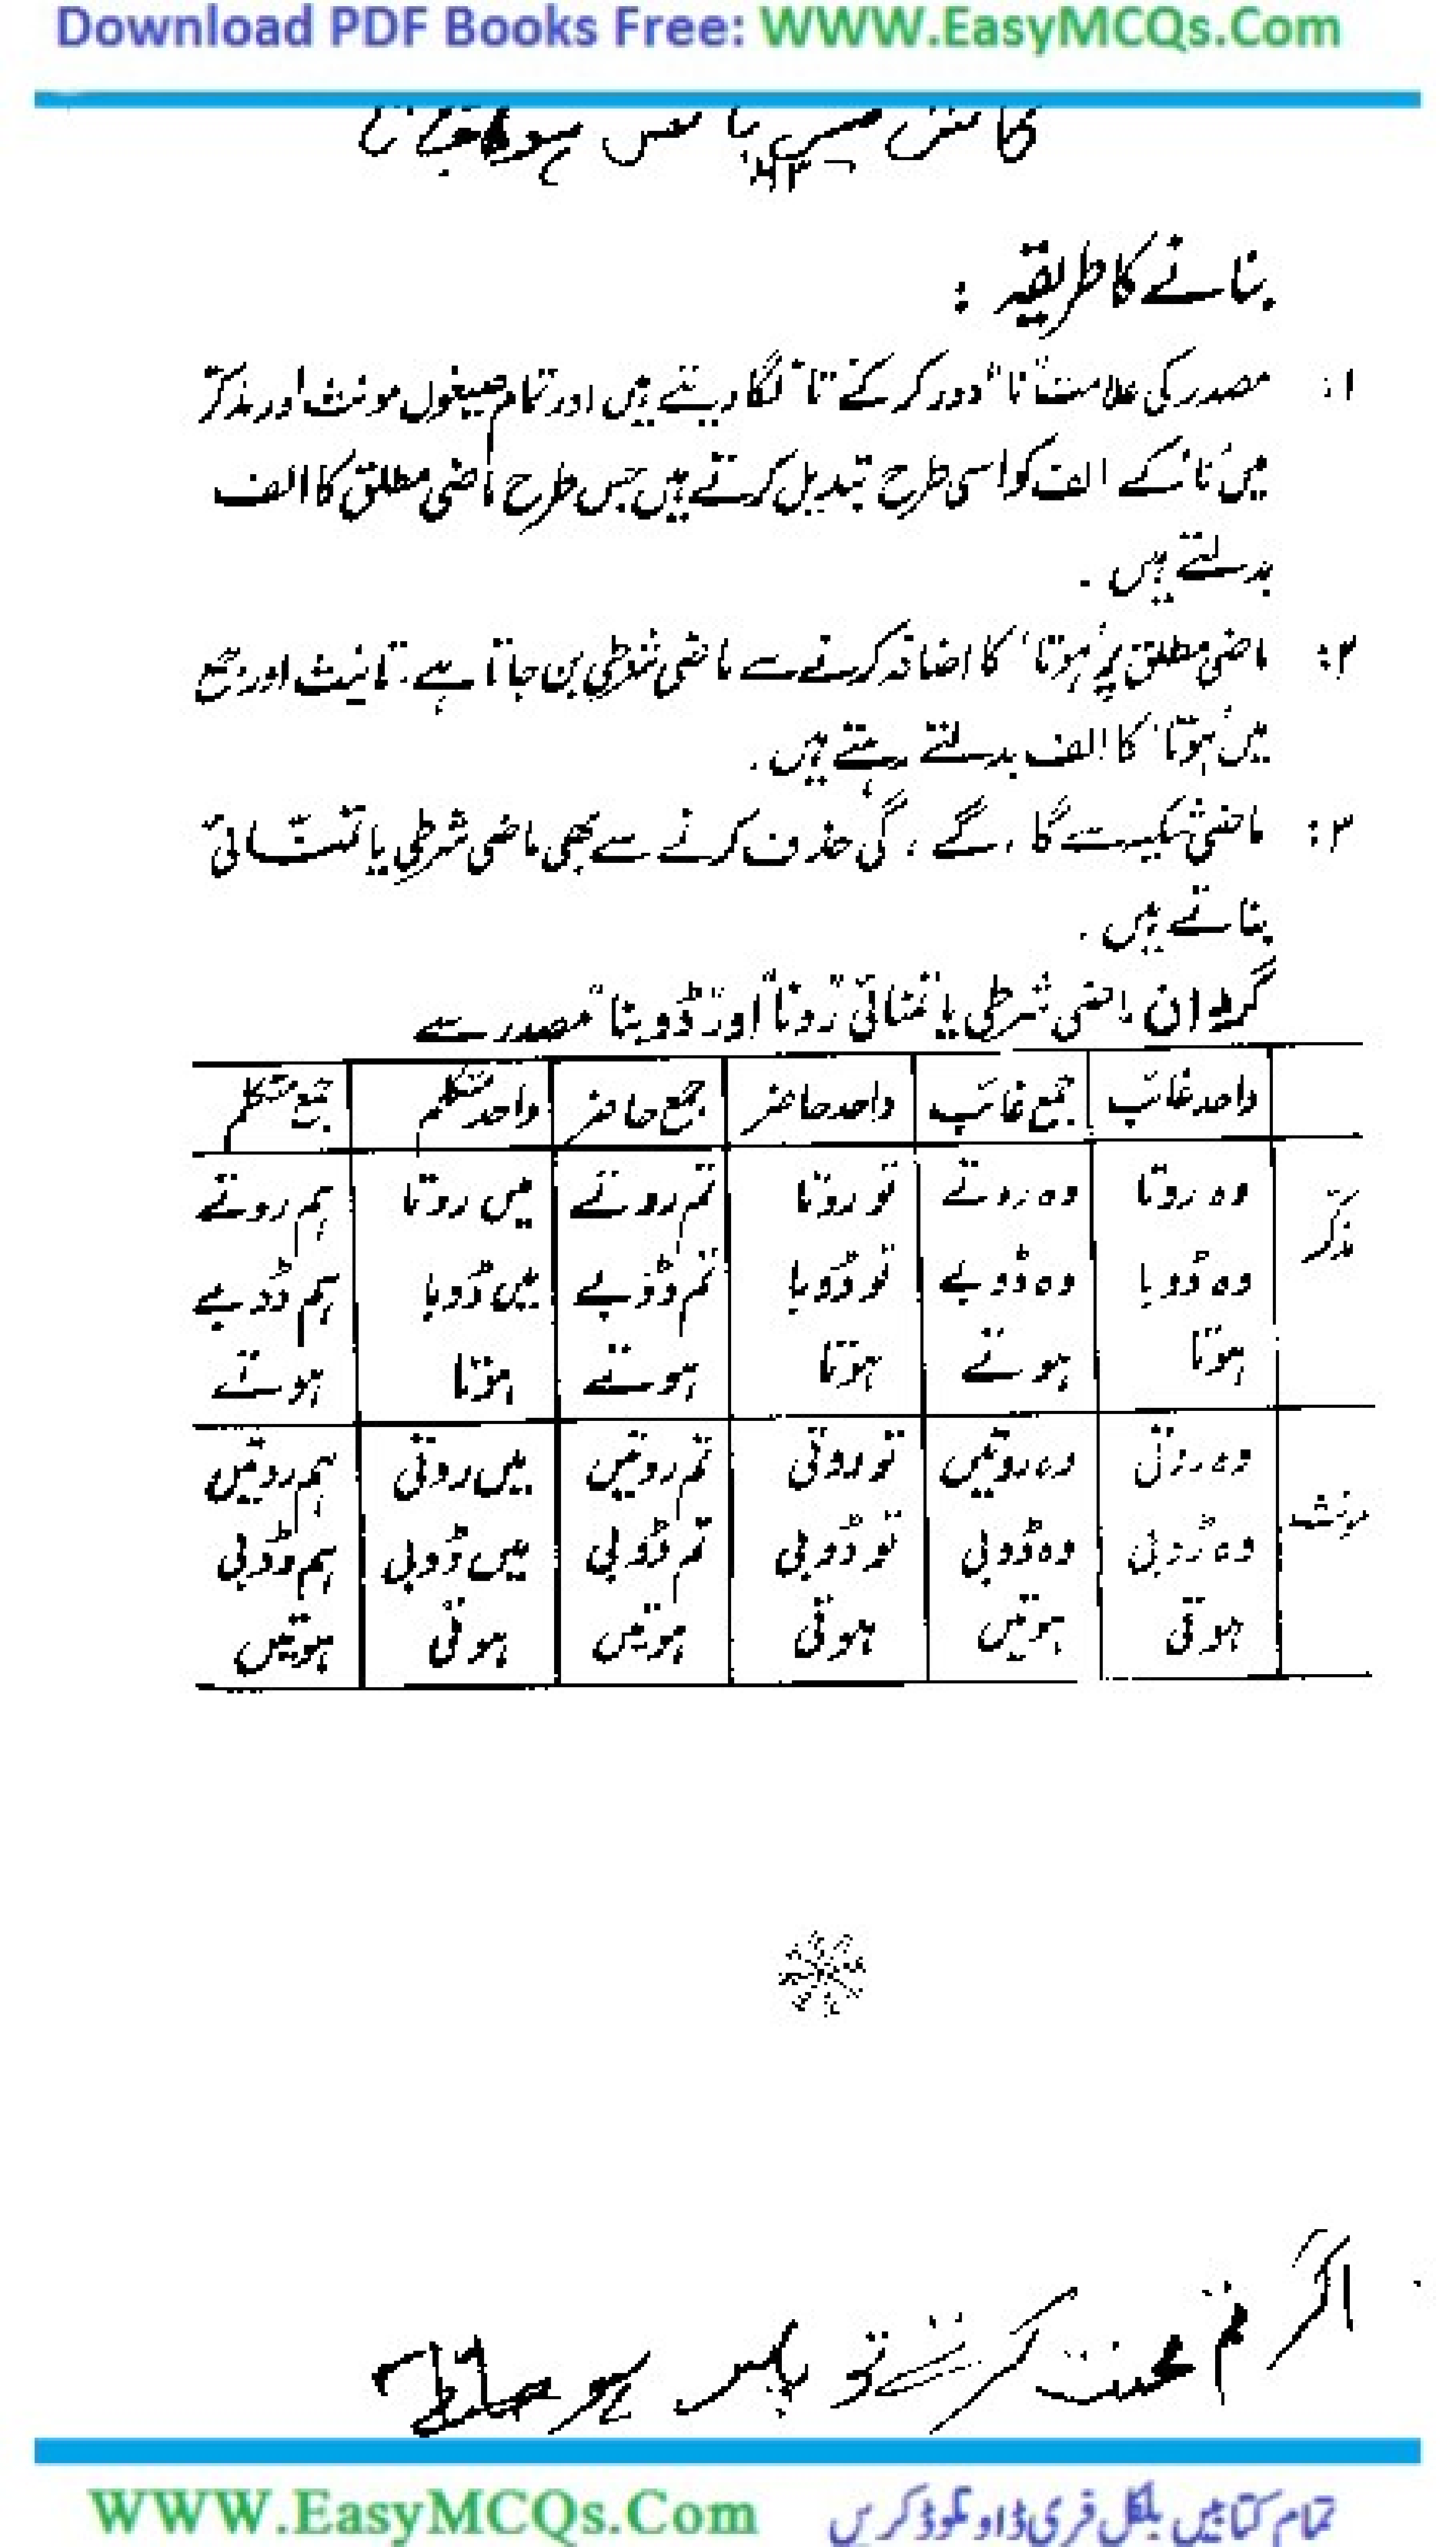 Download PDF Books Free: WWW.EasyMCQs.Com
میں پا
بنانے کا طریقہ :
۱: مصدر کی علامت "نا" دور کر کے "تا" لگا دیتے ہیں اور تمام صیغوں مونث اور مذکر
میں 'تا' کے الف کو اسی طرح تبدیل کرتے ہیں جس طرح ماضی مطلق کا الف
بدلتے ہیں ۔
۲: ماضی مطلق پر 'ہوتا' کا اضافہ کرنے سے ماضی شرطی بن جاتا ہے۔ تانیث اور جمع
میں 'ہوتا' کا الف بدلتے رہتے ہیں ۔
۳: ماضی شکیہ سے گا ، گے ، گی حذف کرنے سے بھی ماضی شرطی یا تمنّائی
بناتے ہیں ۔
گردان ماضی شرطی یا تمنائی "رونا" اور "ڈوبنا" مصدر سے
واحد غائب جمع غائب واحد حاضر جمع حاضر واحد متکلم جمع متکلم
مذکر وہ روتا وہ روتے تو روتا تم روتے میں روتا ہم روتے
وہ ڈوبا وہ ڈوبے تو ڈوبا تم ڈوبے میں ڈوبا ہم ڈوبے
ہوتا ہوتے ہوتا ہوتے ہوتا ہوتے
وہ روتی وہ روتیں تو روتی تم روتیں میں روتی ہم روتیں
مونث وہ ڈوبی وہ ڈوبی تو ڈوبی تم ڈوبی میں ڈوبی ہم ڈوبی
ہوتی ہوتیں ہوتی ہوتیں ہوتی ہوتیں
اگر تم محنت کرتے تو پاس ہو جاتے
WWW.EasyMCQs.Com تمام کتابیں بلکل فری ڈاونلوڈ کریں